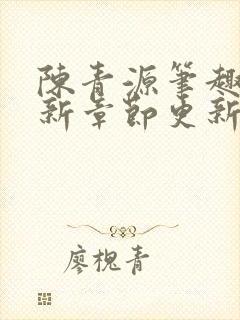 陳青源筆趣
新章節更新
廖槐青